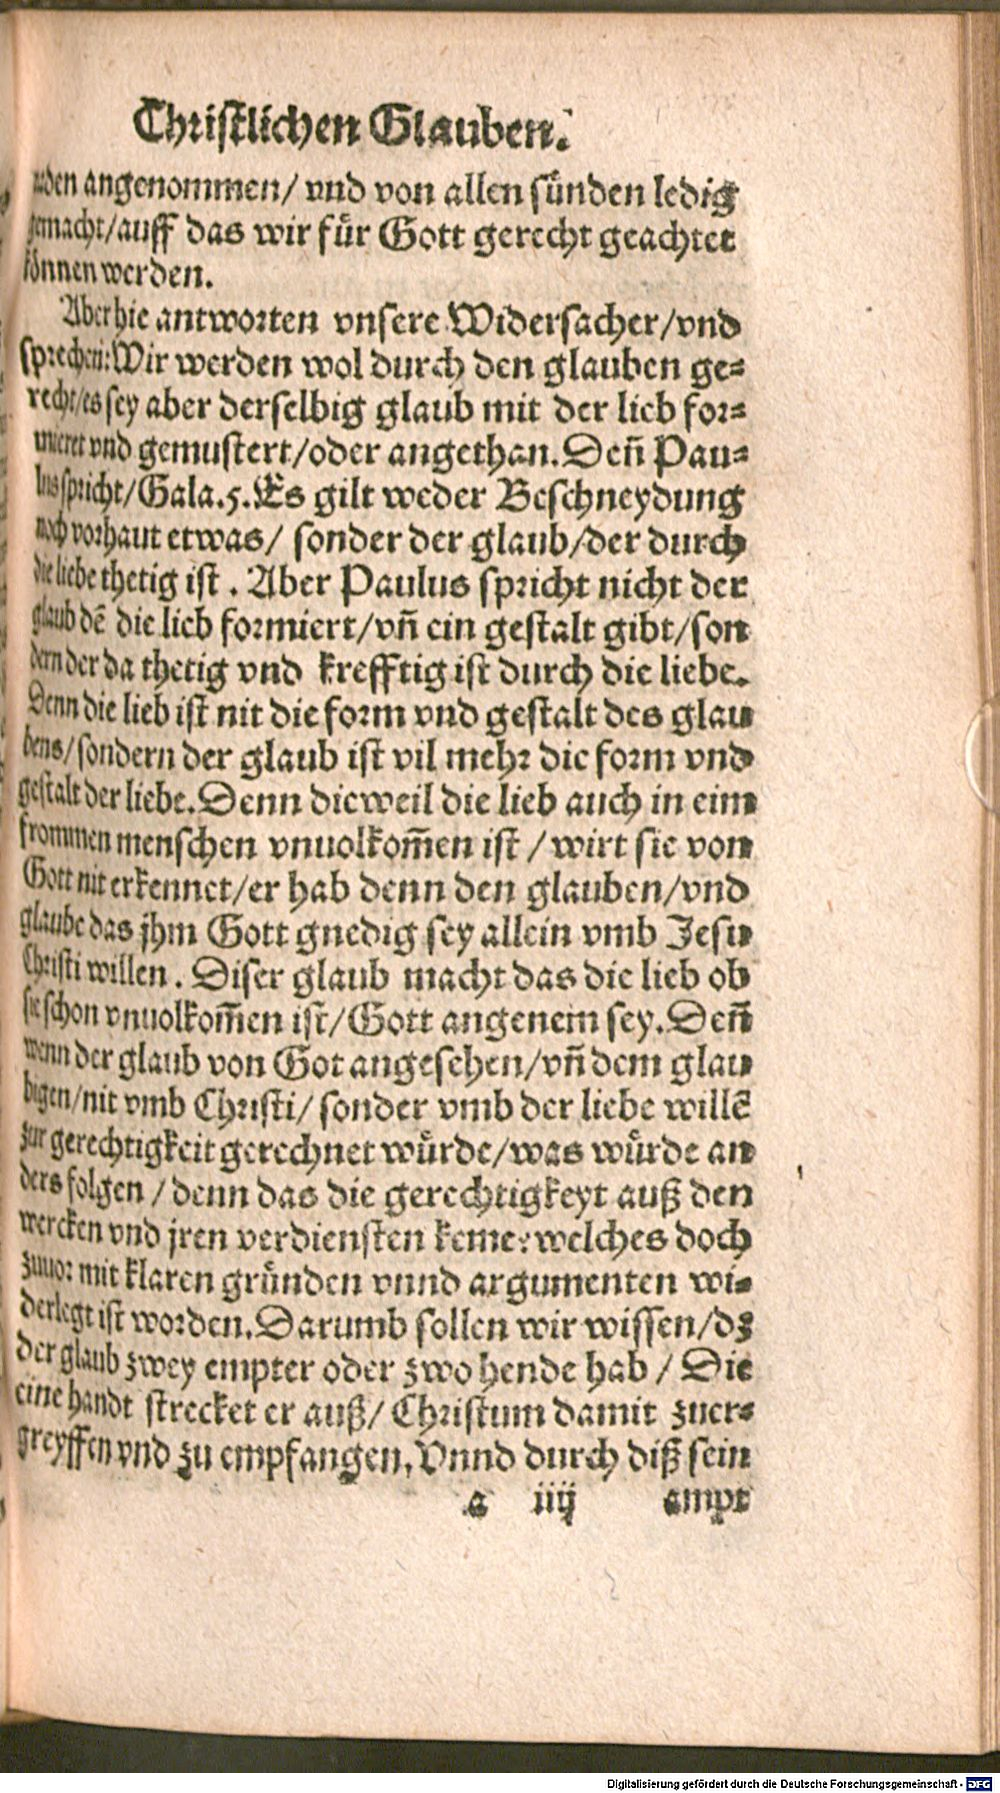 Christlichen Glauben.
naden angenommen/ vnd von allen sünden ledig
gemacht/auff das wir für Gott gerecht geachtet
können werden.
Aber hie antworten vnsere Widersacher/vnd
sprechen: Wir werden wol durch den glauben ge-
recht/es sey aber derselbig glaub mit der lieb for-
mieret vnd gemustert/oder angethan. Deñ Pau-
lus spricht/Gala.5. Es gilt weder Beschneydung
noch vorhaut etwas/ sonder der glaub/der durch
die liebe thetig ist. Aber Paulus spricht nicht der
glaub dē die lieb formiert/vñ ein gestalt gibt/son
dern der da thetig vnd krefftig ist durch die liebe.
Denn die lieb ist nit die form vnd gestalt des glau
bens/sondern der glaub ist vil mehr die form vnd
gestalt der liebe. Denn dieweil die lieb auch in eim
frommen menschen vnuolkom̃en ist / wirt sie von
Gott nit erkennet/er hab denn den glauben/vnd
glaube das jhm Gott gnedig sey allein vmb Jesu
Christi willen. Diser glaub macht das die lieb ob
sie schon vnuolkom̃en ist/Gott angenem sey. Deñ
wenn der glaub von Got angesehen/vñ dem glau
bigen/nit vmb Christi/ sonder vmb der liebe willē
zur gerechtigkeit gerechnet würde/was würde an
ders folgen / denn das die gerechtigkeyt auß den
wercken vnd jren verdiensten keme: welches doch
zuuor mit klaren gründen vnnd argumenten wi-
derlegt ist worden. Darumb sollen wir wissen/dz
der glaub zwey empter oder zwo hende hab / Die
eine handt strecket er auß/ Christum damit zuer-
greyffen vnd zu empfangen, Vnnd durch diß sein
a iiij ampt
Digitalisierung gefördert durch die Deutsche Forschungsgemeinschaft - DFG